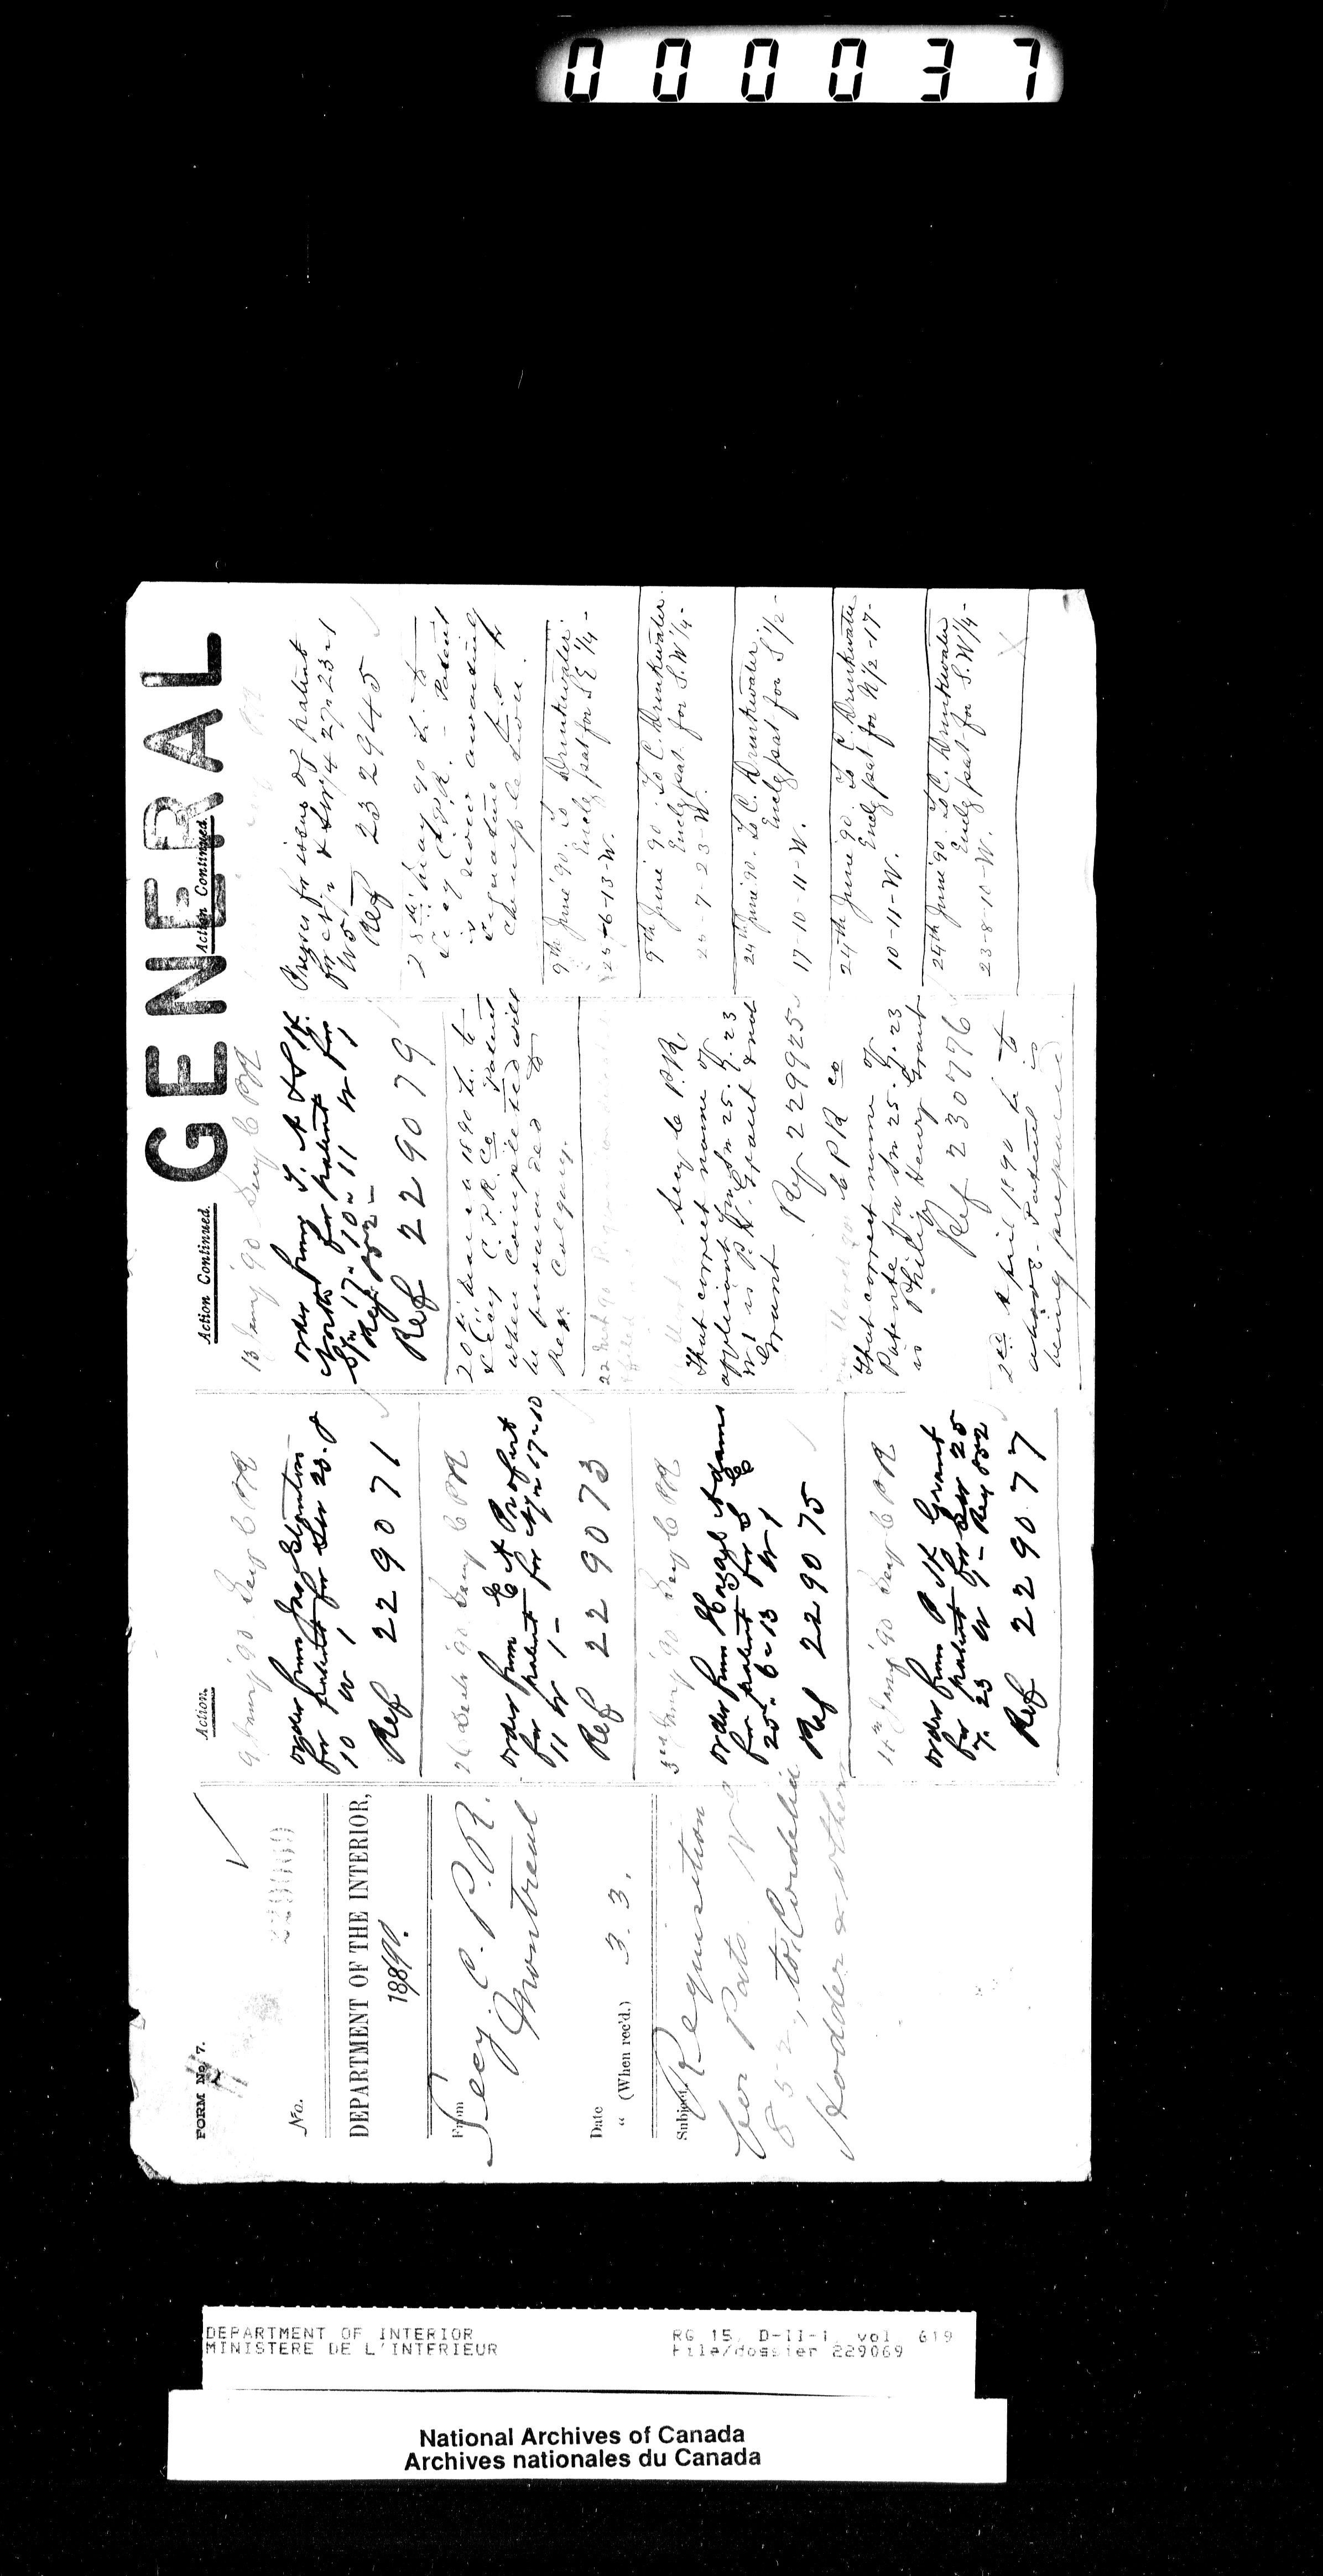 000037
GENERAL
FORM No. 7.
No.
DEPARTMENT OF THE INTERIOR,
1890.
From
Secy. C. P. R.
Montreal
Date
" (When rec'd.) 3. 3.
Subject,
Requisition
for Pats No
852, to Cordelia
Hodder & others
Action.
9 Jany '90 Secy C P R
order from Jas
for patent for SW 23. 8
10 W 1
Ref 229071
26 Decr '90 Secy C P R
order from C A Profurt
for patent for N½ 17-10
11 W 1 -
Ref 229073
3rd Jany '90 Secy C P R
order from Adams
for patent for S E
25. 6 13 W 1
Ref 229075
Jany '90 Secy C P R
order from P H Grant
for patent for SW 25
7. 23 W 1 - Req 852
Ref 229077
Action Continued.
13 Jany '90 Secy C P R
order from
North for patent for
S½ 17 10 11 W 1
Req 852 -
Ref 229079
20th March 1890 L. to
Secy C. P. R. Co Patent
when completed will
be forwarded to
Regr Calgary.
22
Secy C P. R.
That correct name of
applicant for Sw 25. 7. 23
W1 is P. H. Grant & not
Grant
Ref 229925
C P R Co
That correct name of
Patentee for Sw 25. 7. 23
is Philip Henry Grant
Ref 230776
2nd April 1890 L to
above - Patent is
being prepared
Action Continued.
Presses for issue of patent
for
W5
Ref 232945
28th May 90 L. to
Secy C.P.R. - Patent
is now awaiting
signature prior to
completion.
9th June '90. to Drinkwater.
Enclg pat for S E ¼ -
25-6-13-W.
9th June '90. To C. Drinkwater.
Enclg pat. for S.W ¼ -
25-7-23-W.
24th June '90. To C. Drinkwater,
Enclg pat for S ½ -
17-10-11-W.
24th June '90. To C. Drinkwater
Enclg pat for N ½ -17-
10-11-W.
24th June '90. To C. Drinkwater
Enclg pat for S.W ¼ -
23-8-10-W.
DEPARTMENT OF INTERIOR
MINISTERE DE L'INTERIEUR
RG 15, D-II-1, vol 619
File/dossier 229069
National Archives of Canada
Archives nationales du Canada